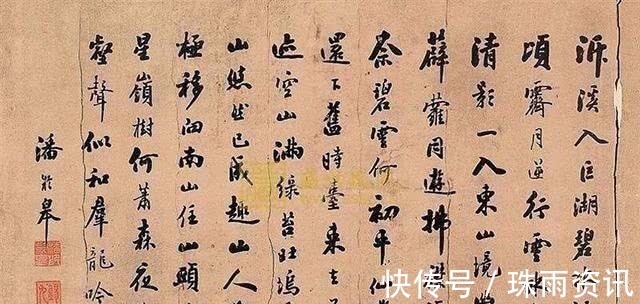 泝溪入巨湖碧
頃霽月逆行雲
清影一入東山境
薜蘿同遊拂
茶碧雲何初平
還下舊時臺來去
迹空山滿綠苔旺塢
山悠然已成趣山人
極移向南山住山頭
星嶺樹何蕭森夜
壑聲似和羣龍吟
潘於皋
快传号／珠雨资讯